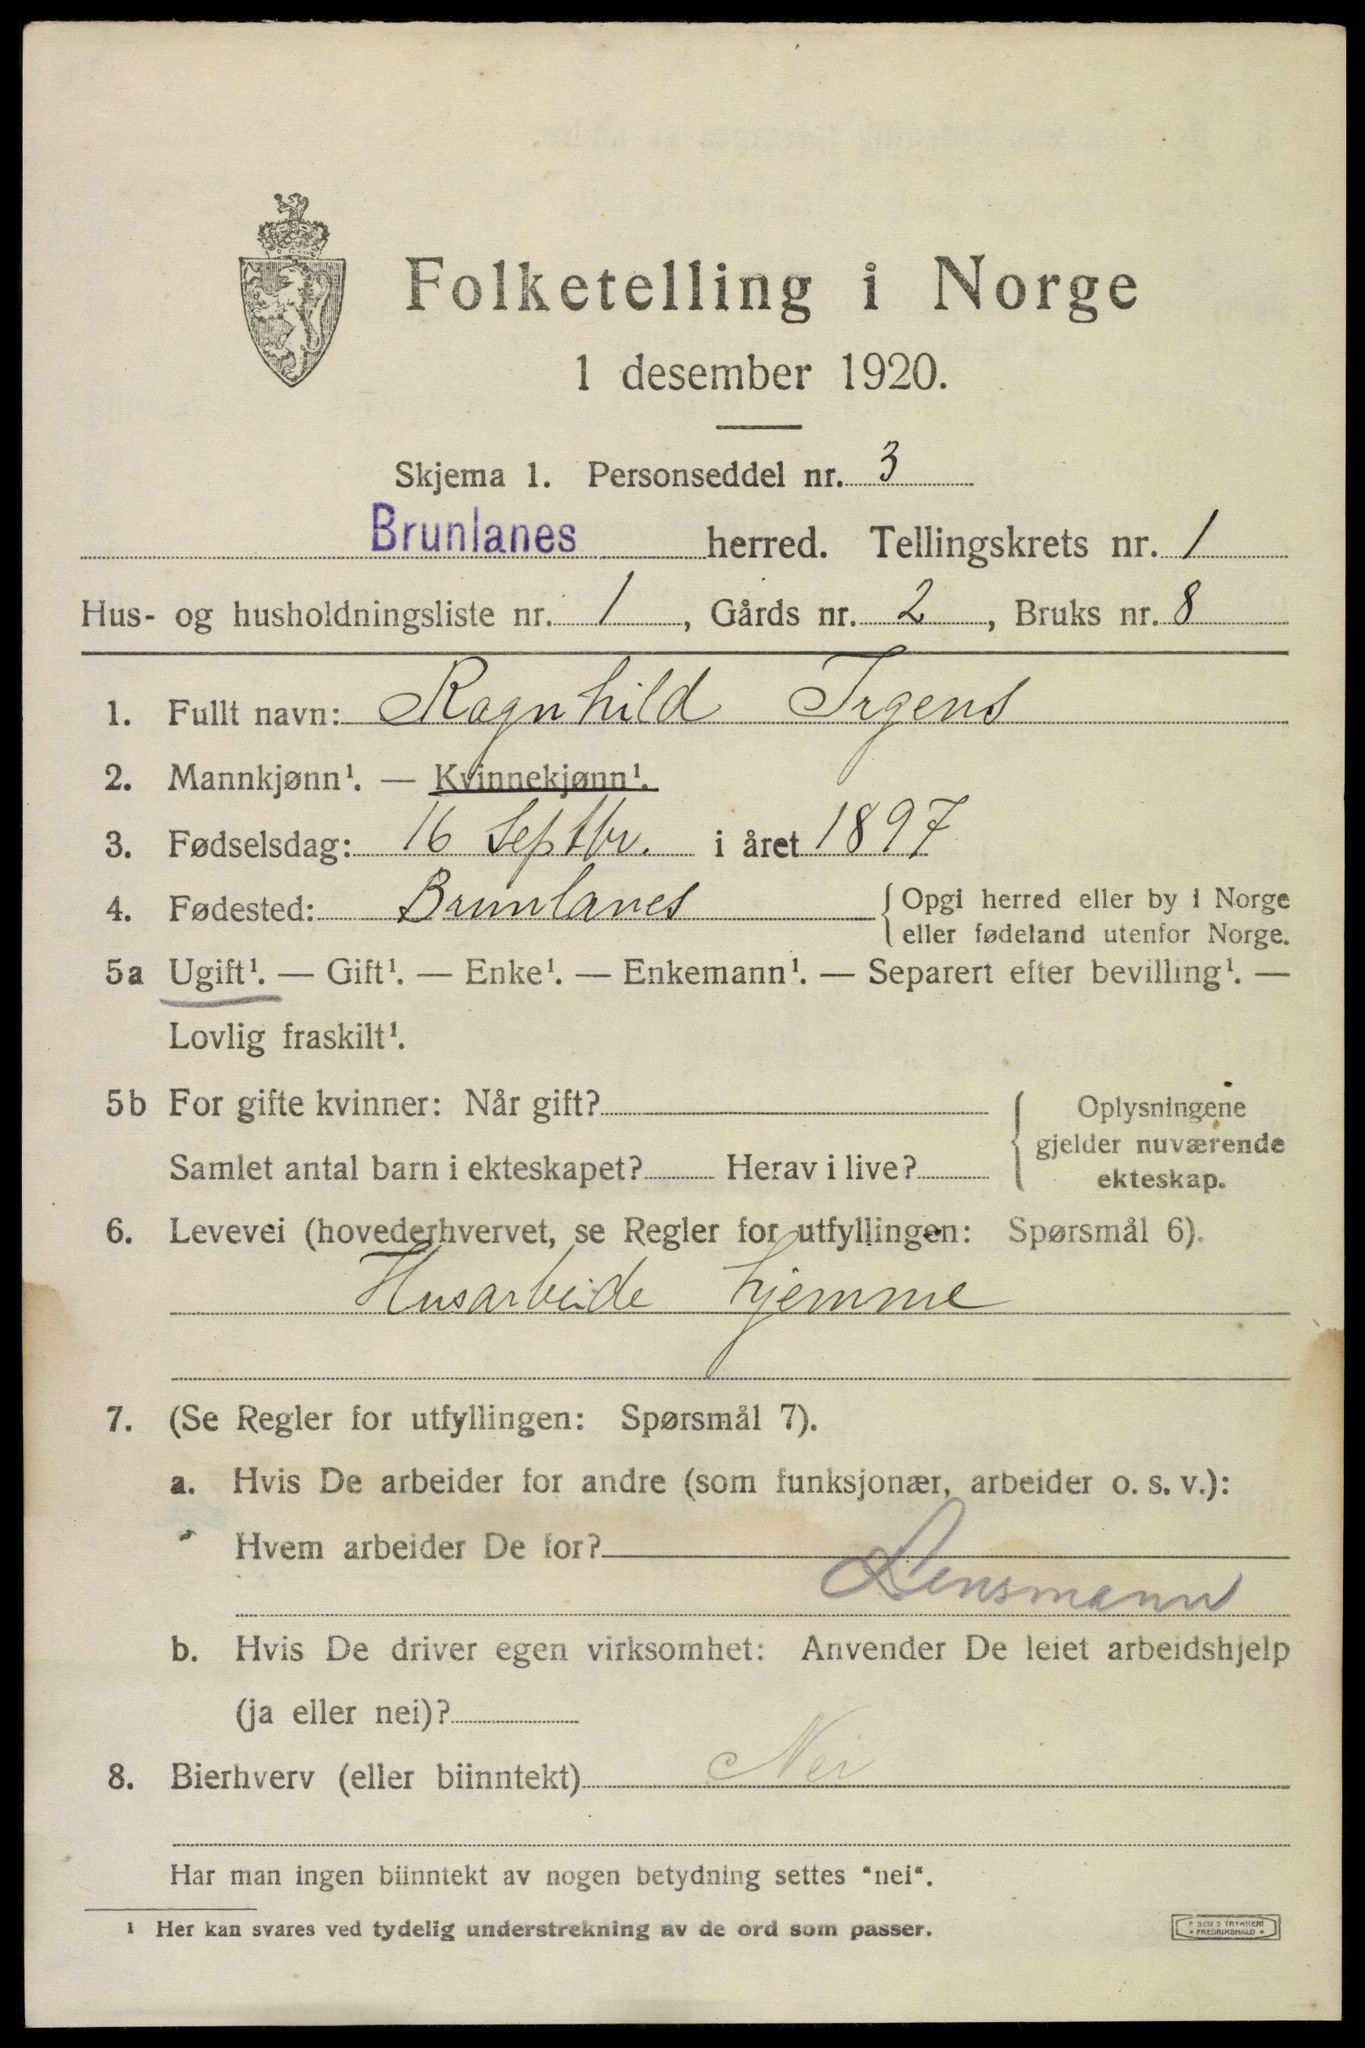 Folketelling i Norge
1 desember 1920.
Skjema 1. Personseddel nr. 3
Brunlanes herred. Tellingskrets nr. 1
Hus- og husholdningsliste nr. 1, Gårds nr. 2, Bruks nr. 8
1. Fullt navn: Ragnhild Irgens
2. Mannkjønn¹. — Kvinnekjønn¹.
3. Fødselsdag: 16 Septbr. i året 1897
4. Fødested: Brunlanes { Opgi herred eller by i Norge
eller fødeland utenfor Norge.
5a Ugift¹. — Gift¹. — Enke¹. — Enkemann¹. — Separert efter bevilling¹. —
Lovlig fraskilt¹.
5b For gifte kvinner: Når gift? { Oplysningene
gjelder nuværende
Samlet antal barn i ekteskapet? Herav i live?
ekteskap.
6. Levevei (hovederhvervet, se Regler for utfyllingen: Spørsmål 6).
Husarbeide hjemme
7. (Se Regler for utfyllingen: Spørsmål 7).
a. Hvis De arbeider for andre (som funksjonær, arbeider o. s. v.):
Hvem arbeider De for?
Lensmann
b. Hvis De driver egen virksomhet: Anvender De leiet arbeidshjelp
(ja eller nei)?
8. Bierhverv (eller biinntekt) Nei
Har man ingen biinntekt av nogen betydning settes "nei".
¹ Her kan svares ved tydelig understrekning av de ord som passer.
TRYKKERI
FREDRIKSHALD